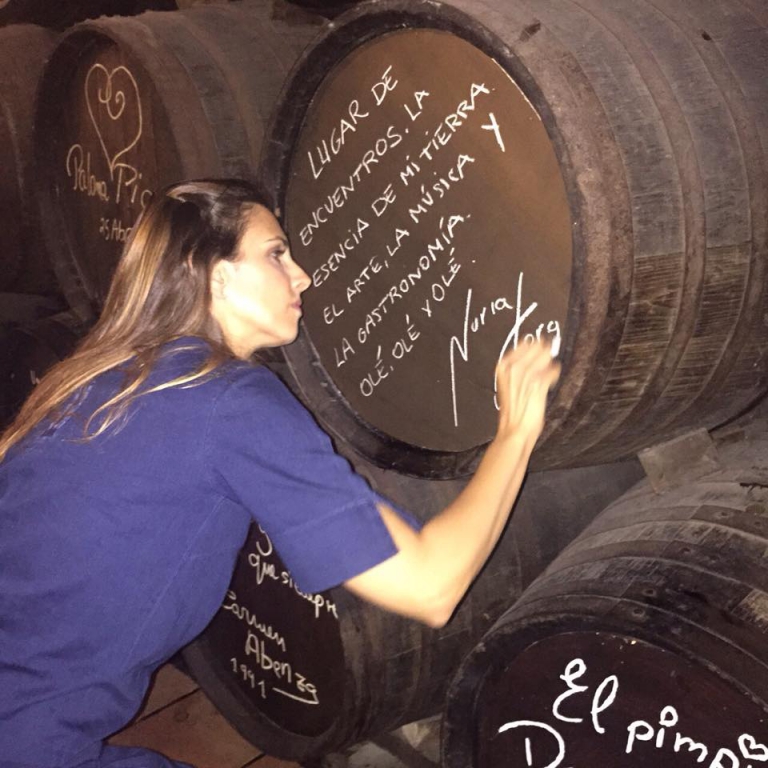 LUGAR DE
ENCUENTROS. LA
ESENCIA DE MI TIERRA.
EL ARTE, LA MÚSICA Y
LA GASTRONOMÍA.
OLÉ, OLÉ Y OLÉ.
Nuria
Paloma
25
que siempre
Carmen
Abenza
1991
El pimpi